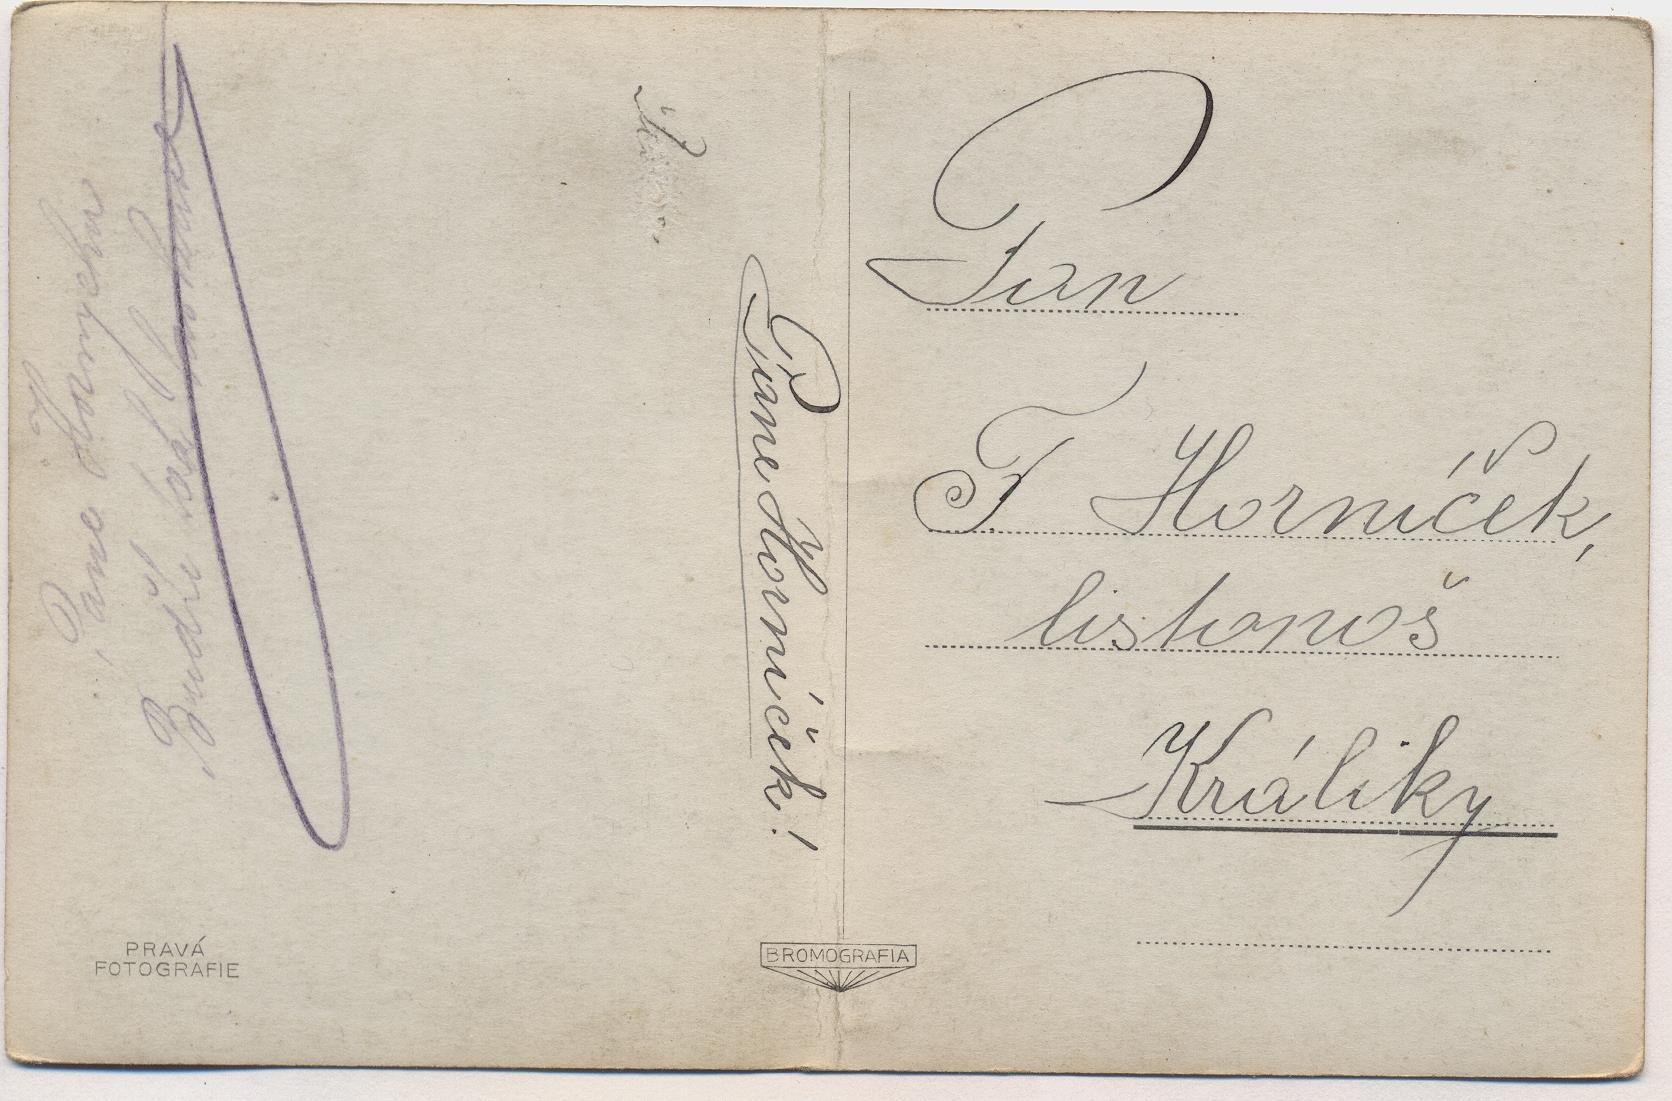 Pane
Buďte tak
Pane Horníček!
Pan
F Horníček,
listonoš
Králiky
PRAVÁ
FOTOGRAFIE
BROMOGRAFIA